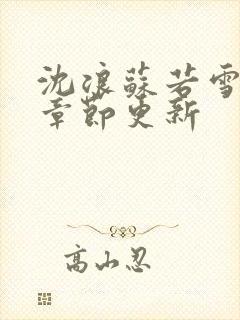 沈浪蘇若雪
章節更新
高山忍